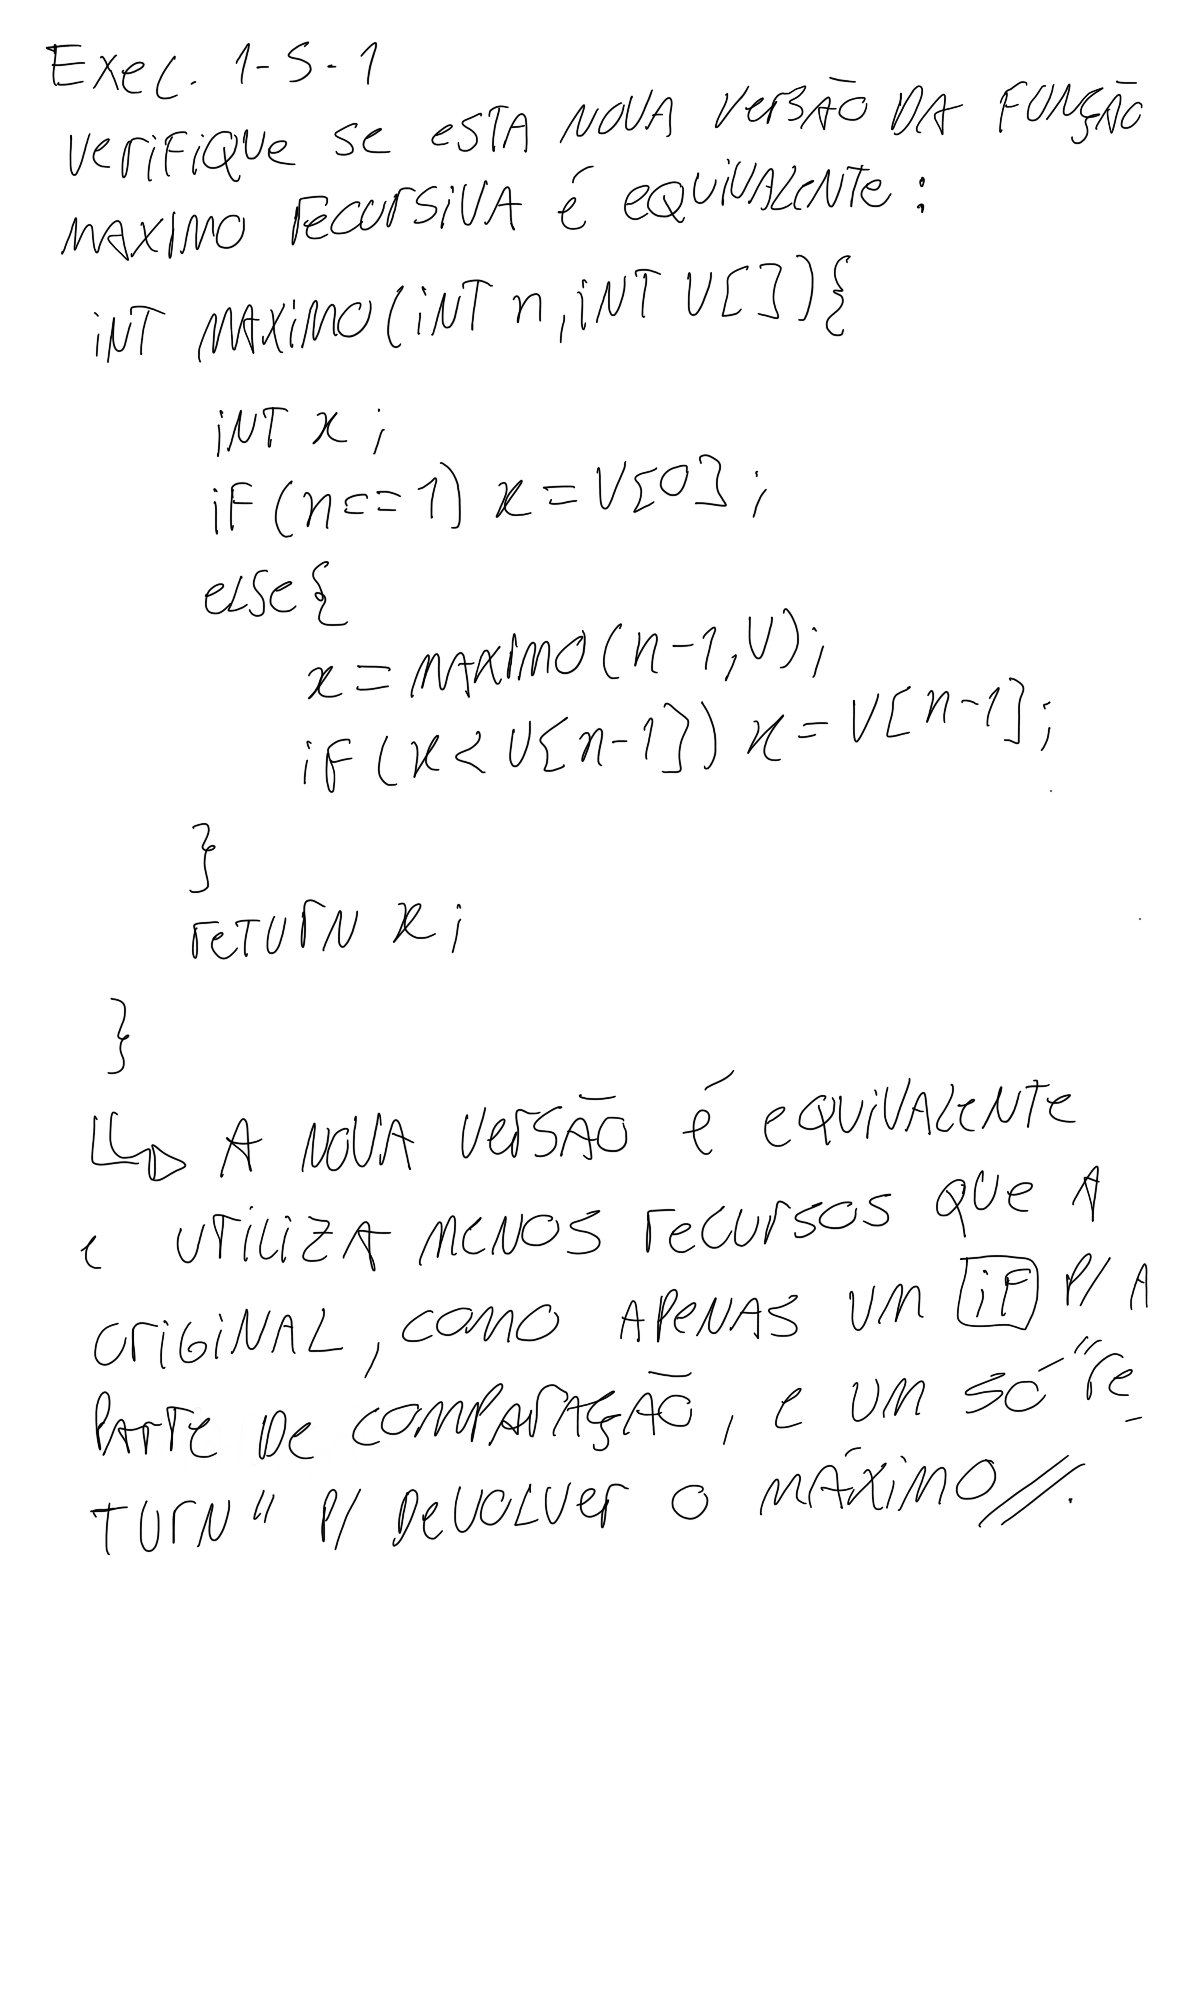 Exec. 1-S-1
VeriFiQUe Se eSTA NOVA VerSÃO DA FUNÇÃO
MAXIMO recUrSiVA é eQUiVALeNTe:
iNT MAXiMO(iNT n,iNT V[]){
iNT x;
iF(n==1) x=V[0];
eLSe{
x=MAXIMO(n-1,V);
iF(x<V[n-1]) x=V[n-1];
}
reTUrN x;
}
A NOVA VerSÃO é eQUiVALeNTe
e UTiLiZA MeNOS recUrSOS QUe A
OriGiNAL, COMO APeNAS UM iF P/ A
PArTe De COMPArAÇÃO, e UM SÓ "re_
TUrN" P/ DeVOLVer O MÁXiMO//.